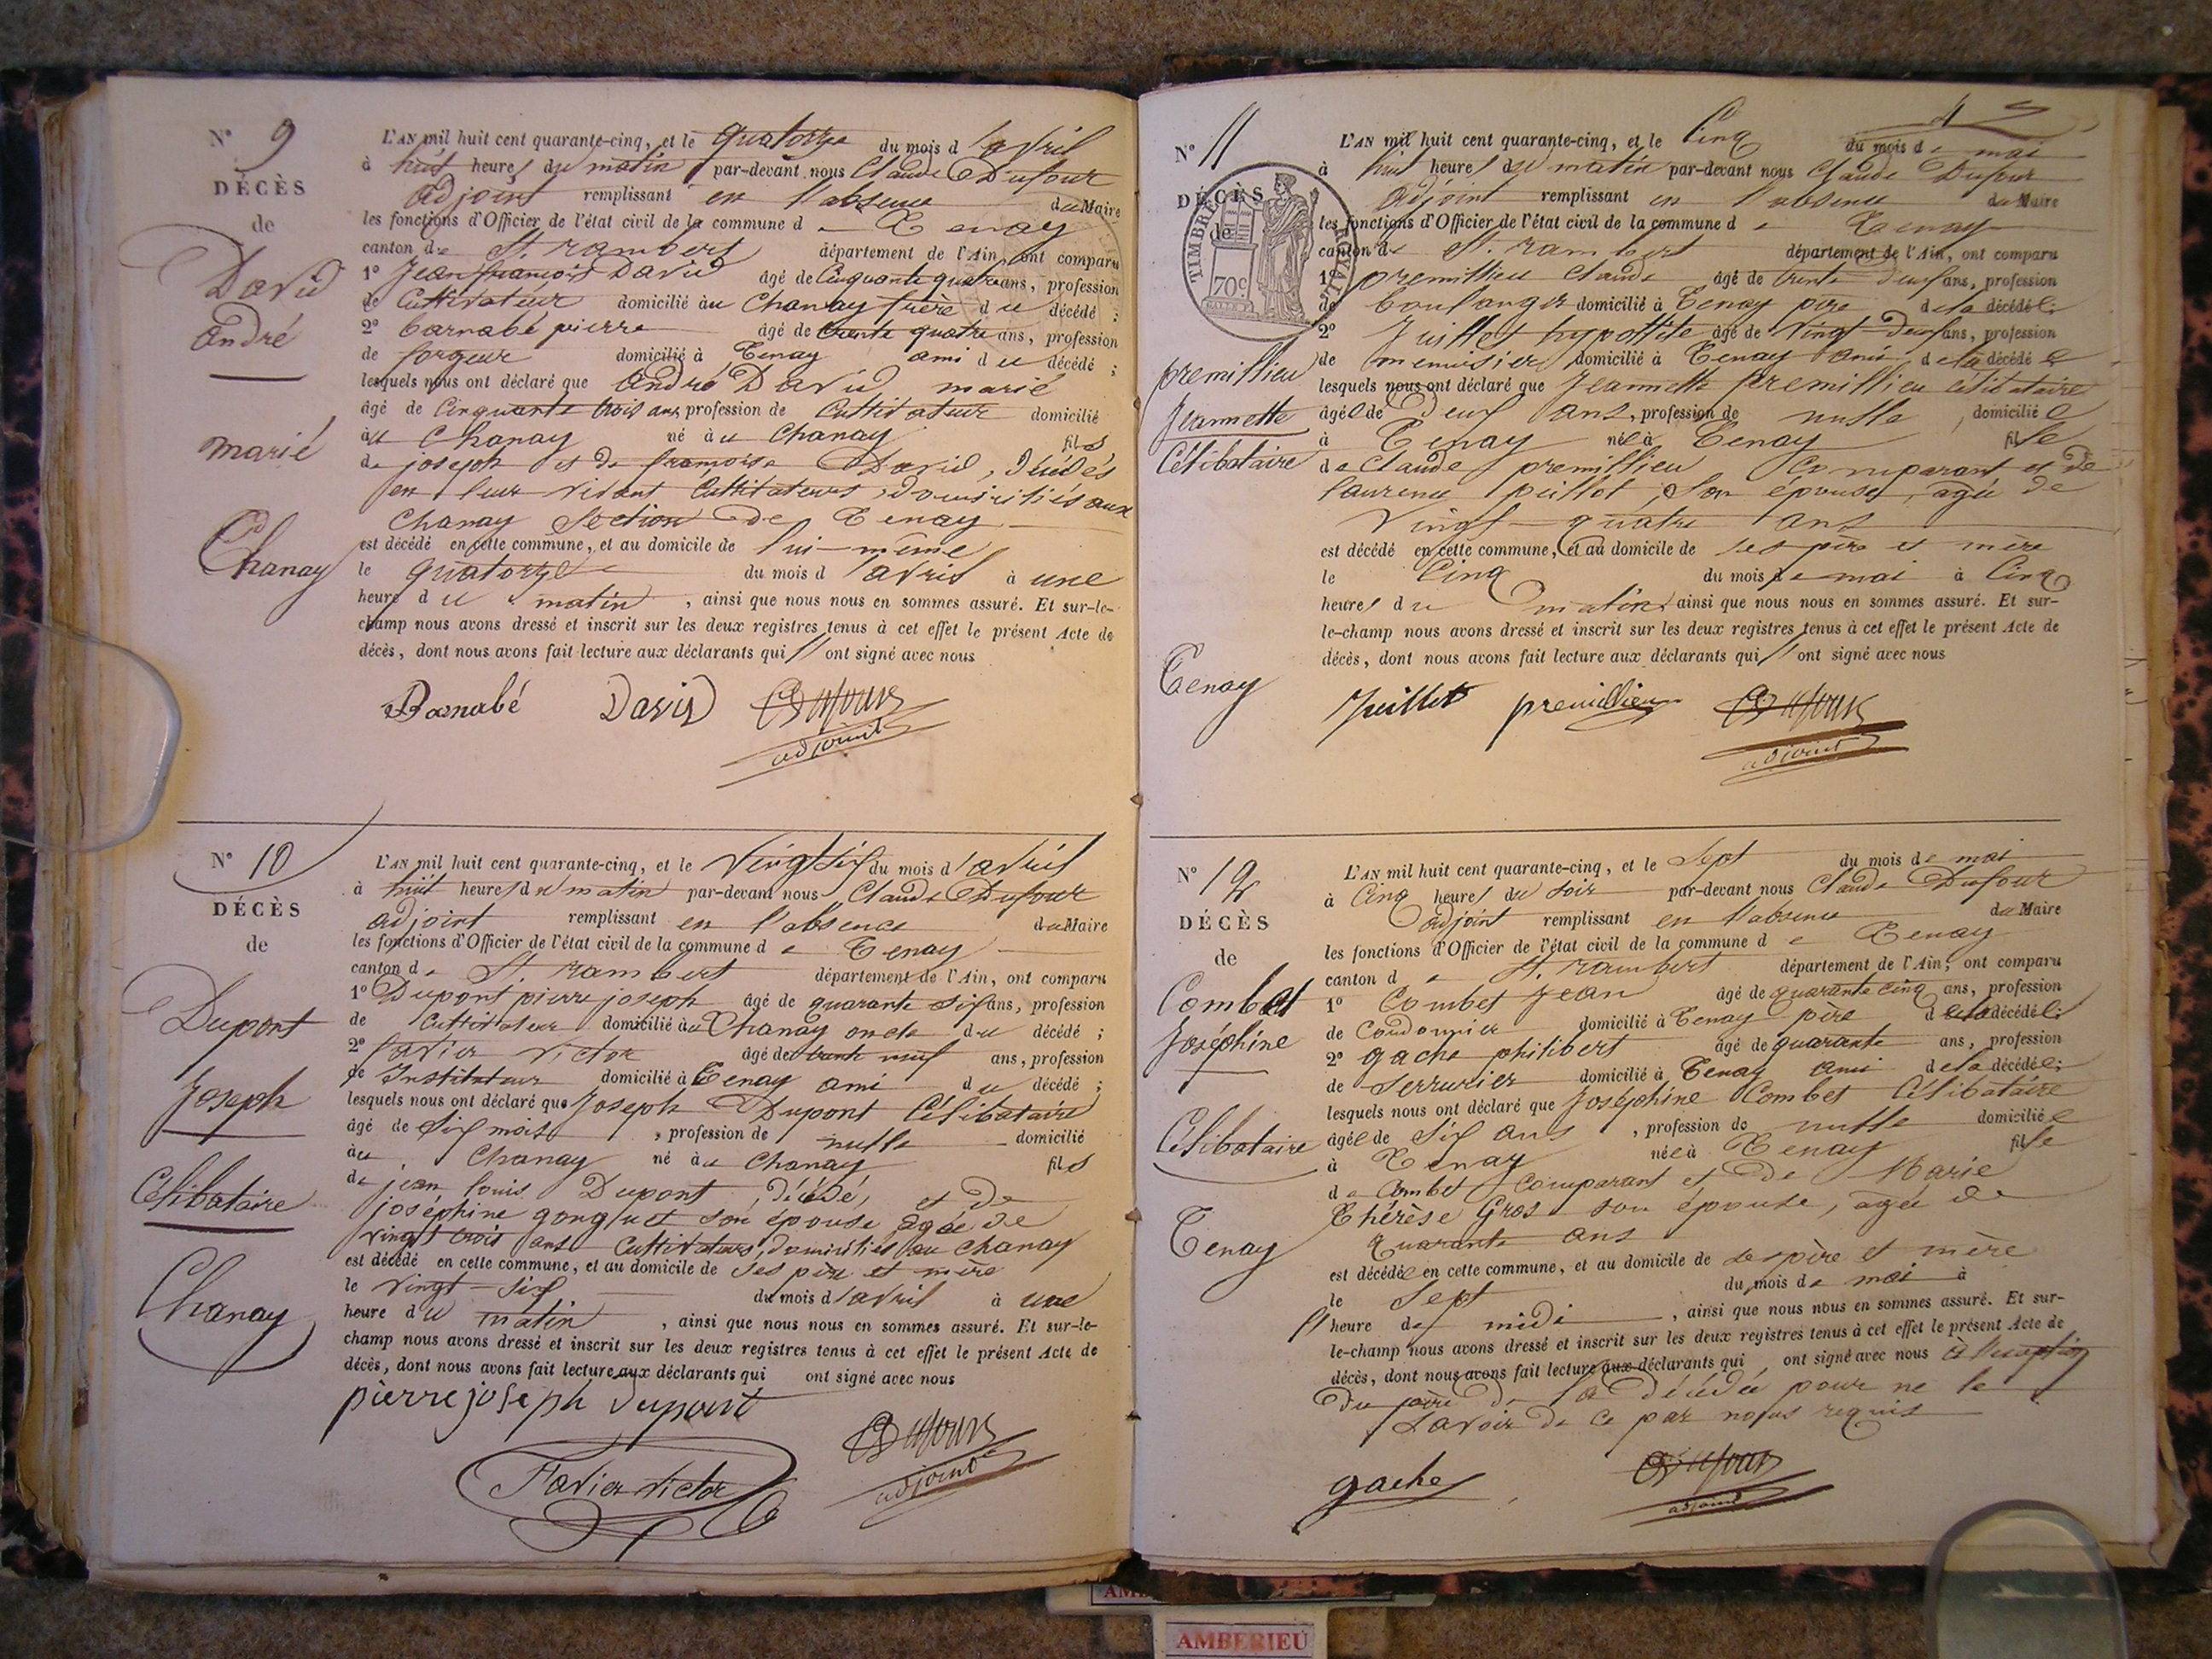 N° 9
DÉCÈS
de
David
André
marié
Chanay
L'AN mil huit cent quarante-cinq, et le quatorze du mois d'avril
à huit heures du matin par-devant nous Claude Dufour
adjoint remplissant en l'absence du Maire
les fonctions d'Officier de l'état civil de la commune de Tenay
canton de St. rambert département de l'Ain, ont comparu
1° Jean françois David âgé de Cinquante quatre ans, profession
de Cultivateur domicilié au Chanay frère du décédé ;
2° barnabé pierre âgé de trente quatre ans, profession
de forgeur domicilié à Tenay ami du décédé ;
lesquels nous ont déclaré que André David marié
âgé de Cinquante trois ans profession de Cultivateur domicilié
au Chanay né au Chanay fils
de joseph et de françoise David, décédés
en leur vivant Cultivateurs, domiciliés aux
Chanay Section de Tenay
est décédé en cette commune, et au domicile de lui-même
le quatorze du mois d'avril à une
heure du matin, ainsi que nous nous en sommes assuré. Et sur-le-
champ nous avons dressé et inscrit sur les deux registres tenus à cet effet le présent Acte de
décès, dont nous avons fait lecture aux déclarants qui ont signé avec nous
Barnabé David CDufour
adjoint
N° 10
DÉCÈS
de
Dupont
Joseph
Célibataire
Chanay
L'AN mil huit cent quarante-cinq, et le Vingt six du mois d'avril
à huit heures du matin par-devant nous Claude Dufour
adjoint remplissant en l'absence du Maire
les fonctions d'Officier de l'état civil de la commune de Tenay
canton de St. rambert département de l'Ain, ont comparu
1° Dupont pierre joseph âgé de quarante six ans, profession
de Cultivateur domicilié au Chanay oncle du décédé ;
2° favier victor âgé de trente neuf ans, profession
de Instituteur domicilié à Tenay ami du décédé ;
lesquels nous ont déclaré que Joseph Dupont Célibataire
âgé de Six mois, profession de nulle domicilié
au Chanay né au Chanay fils
de jean louis Dupont, décédé, et de
joséphine son épouse âgée de
vingt trois ans Cultivateurs, domiciliés au Chanay
est décédé en cette commune, et au domicile de ses père et mère
le vingt-six du mois d'avril à une
heure du matin, ainsi que nous nous en sommes assuré. Et sur-le-
champ nous avons dressé et inscrit sur les deux registres tenus à cet effet le présent Acte de
décès, dont nous avons fait lecture aux déclarants qui ont signé avec nous
pierre joseph dupont
CDufour
adjoint
Favier victor
N° 11
DÉCÈS
de
TIMBRE ROYAL
70c
premillieu
Jeannette
Célibataire
Tenay
L'AN mil huit cent quarante-cinq, et le Cinq du mois de mai
à huit heures du matin par-devant nous Claude Dufour
adjoint remplissant en l'absence du Maire
les fonctions d'Officier de l'état civil de la commune de Tenay
canton de St. rambert département de l'Ain, ont comparu
1° premillieu Claude âgé de trente deux ans, profession
de boulanger domicilié à Tenay père de la décédée;
2° Juillet hypollite âgé de Vingt-deux ans, profession
de menuisier domicilié à Tenay ami de la décédée
lesquels nous ont déclaré que Jeannette Premillieu célibataire
âgée de Deux ans, profession de nulle, domiciliée
à Tenay née à Tenay fille
de Claude premillieu Comparant et de
laurence juillot, Son épouse, agée de
Vingt-quatre ans
est décédé en cette commune, et au domicile de ses père et mère
le Cinq du mois de mai à Cinq
heures du matin ainsi que nous nous en sommes assuré. Et sur-
le-champ nous avons dressé et inscrit sur les deux registres tenus à cet effet le présent Acte de
décès, dont nous avons fait lecture aux déclarants qui ont signé avec nous
Juillet premillieu CDufour
adjoint
N° 12
DÉCÈS
de
Combet
Joséphine
Célibataire
Tenay
L'AN mil huit cent quarante-cinq, et le Sept du mois de mai
à Cinq heures du soir par-devant nous Claude Dufour
adjoint remplissant en l'absence du Maire
les fonctions d'Officier de l'état civil de la commune de Tenay
canton de St. rambert département de l'Ain, ont comparu
1° Combet Jean âgé de quarante cinq ans, profession
de Cordonnier domicilié à Tenay père de la décédée;
2° gache philibert âgé de quarante ans, profession
de Serrurier domicilié à Tenay ami de la décédée;
lesquels nous ont déclaré que Joséphine Combet Célibataire
âgée de Six ans, profession de nulle domiciliée
à Tenay née à Tenay fille
de Combet Comparant et de Marie
Thérèse Gros son épouse, agée de
Quarante ans
est décédée en cette commune, et au domicile de ses père et mère
le Sept du mois de mai à
heure de midi, ainsi que nous nous en sommes assuré. Et sur-
le-champ nous avons dressé et inscrit sur les deux registres tenus à cet effet le présent Acte de
décès, dont nous avons fait lecture aux déclarants qui ont signé avec nous à l'exception
du père de la décédée pour ne le
Savoir de ce par nous requis
gache CDufour
adjoint
AMBERIEU